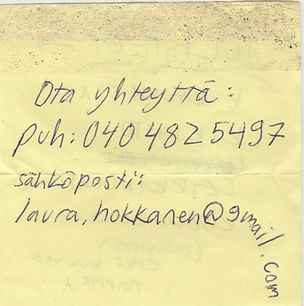 Ota yhteyttä:
puh: 040 482 5497
sähköposti:
laura.hokkanen@gmail.com